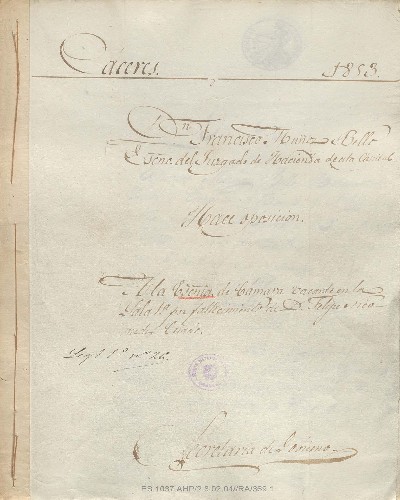 Cáceres. 1853.
Dn. Francisco Muñoz Bello
Esno. del Juzgado de Hacienda de esta Capital
Hace oposicion.
A la Esnia. de Camara vacante en la
Sala 1a. por fallecimiento de D. Felipe
Leg. 1o. no. 26.
Secretaria de Gobierno
ES.1037.AHP/2.8.02.04//RA/359.1